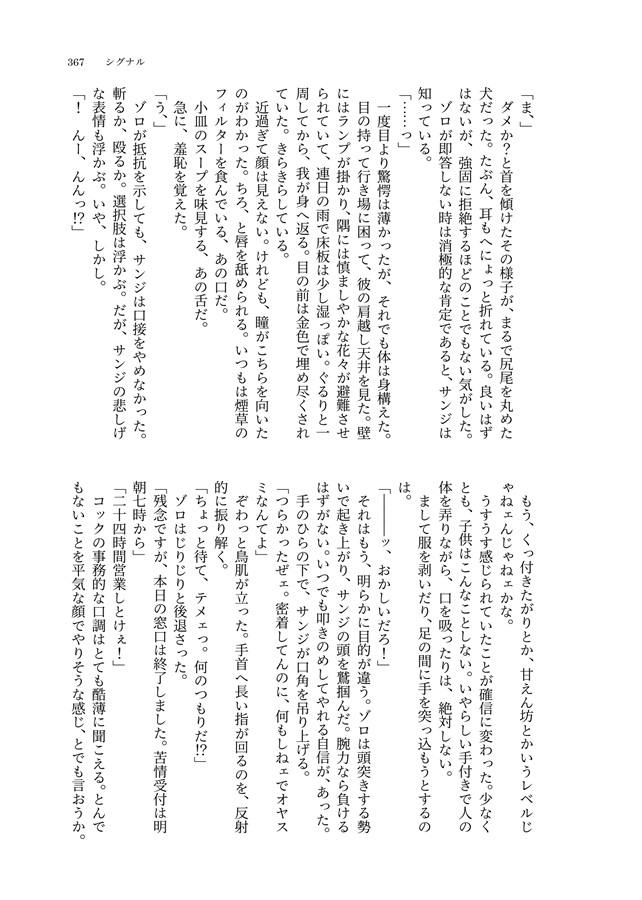 367　シグナル
「ま、」
　ダメか？と首を傾けたその様子が、まるで尻尾を丸めた
犬だった。たぶん、耳もへにょっと折れている。良いはず
はないが、強固に拒絶するほどのことでもない気がした。
　ゾロが即答しない時は消極的な肯定であると、サンジは
知っている。
「……っ」
　一度目より驚愕は薄かったが、それでも体は身構えた。
　目の持って行き場に困って、彼の肩越し天井を見た。壁
にはランプが掛かり、隅には慎ましやかな花々が避難させ
られていて、連日の雨で床板は少し湿っぽい。ぐるりと一
周してから、我が身へ返る。目の前は金色で埋め尽くされ
ていた。きらきらしている。
　近過ぎて顔は見えない。けれども、瞳がこちらを向いた
のがわかった。ちろ、と唇を舐められる。いつもは煙草の
フィルターを食んでいる、あの口だ。
　小皿のスープを味見する、あの舌だ。
　急に、羞恥を覚えた。
「う、」
　ゾロが抵抗を示しても、サンジは口接をやめなかった。
斬るか、殴るか。選択肢は浮かぶ。だが、サンジの悲しげ
な表情も浮かぶ。いや、しかし。
「！　んー、んんっ!?」
　もう、くっ付きたがりとか、甘えん坊とかいうレベルじ
ゃねェんじゃねェかな。
　うすうす感じられていたことが確信に変わった。少なく
とも、子供はこんなことしない。いやらしい手付きで人の
体を弄りながら、口を吸ったりは、絶対しない。
　まして服を剥いだり、足の間に手を突っ込もうとするの
は。
「―――ッ、おかしいだろ！」
　それはもう、明らかに目的が違う。ゾロは頭突きする勢
いで起き上がり、サンジの頭を鷲掴んだ。腕力なら負ける
はずがない。いつでも叩きのめしてやれる自信が、あった。
　手のひらの下で、サンジが口角を吊り上げる。
「つらかったぜェ。密着してんのに、何もしねェでオヤス
ミなんてよ」
　ぞわっと鳥肌が立った。手首へ長い指が回るのを、反射
的に振り解く。
「ちょっと待て、テメェっ。何のつもりだ!?」
　ゾロはじりじりと後退さった。
「残念ですが、本日の窓口は終了しました。苦情受付は明
朝七時から」
「二十四時間営業しとけぇ！」
　コックの事務的な口調はとても酷薄に聞こえる。とんで
もないことを平気な顔でやりそうな感じ、とでも言おうか。